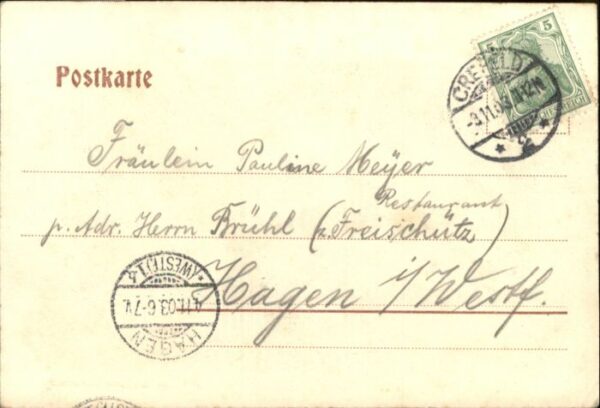 5
CREFELD
-3.11.03.
2
Postkarte
Fräulein Pauline Meyer
Restaurant
p. Adr. Herrn Brühl (z. Freischütz)
Hagen i/Westf.
HAGEN
4.11.03.6-7V.
*(WESTF.)1 d